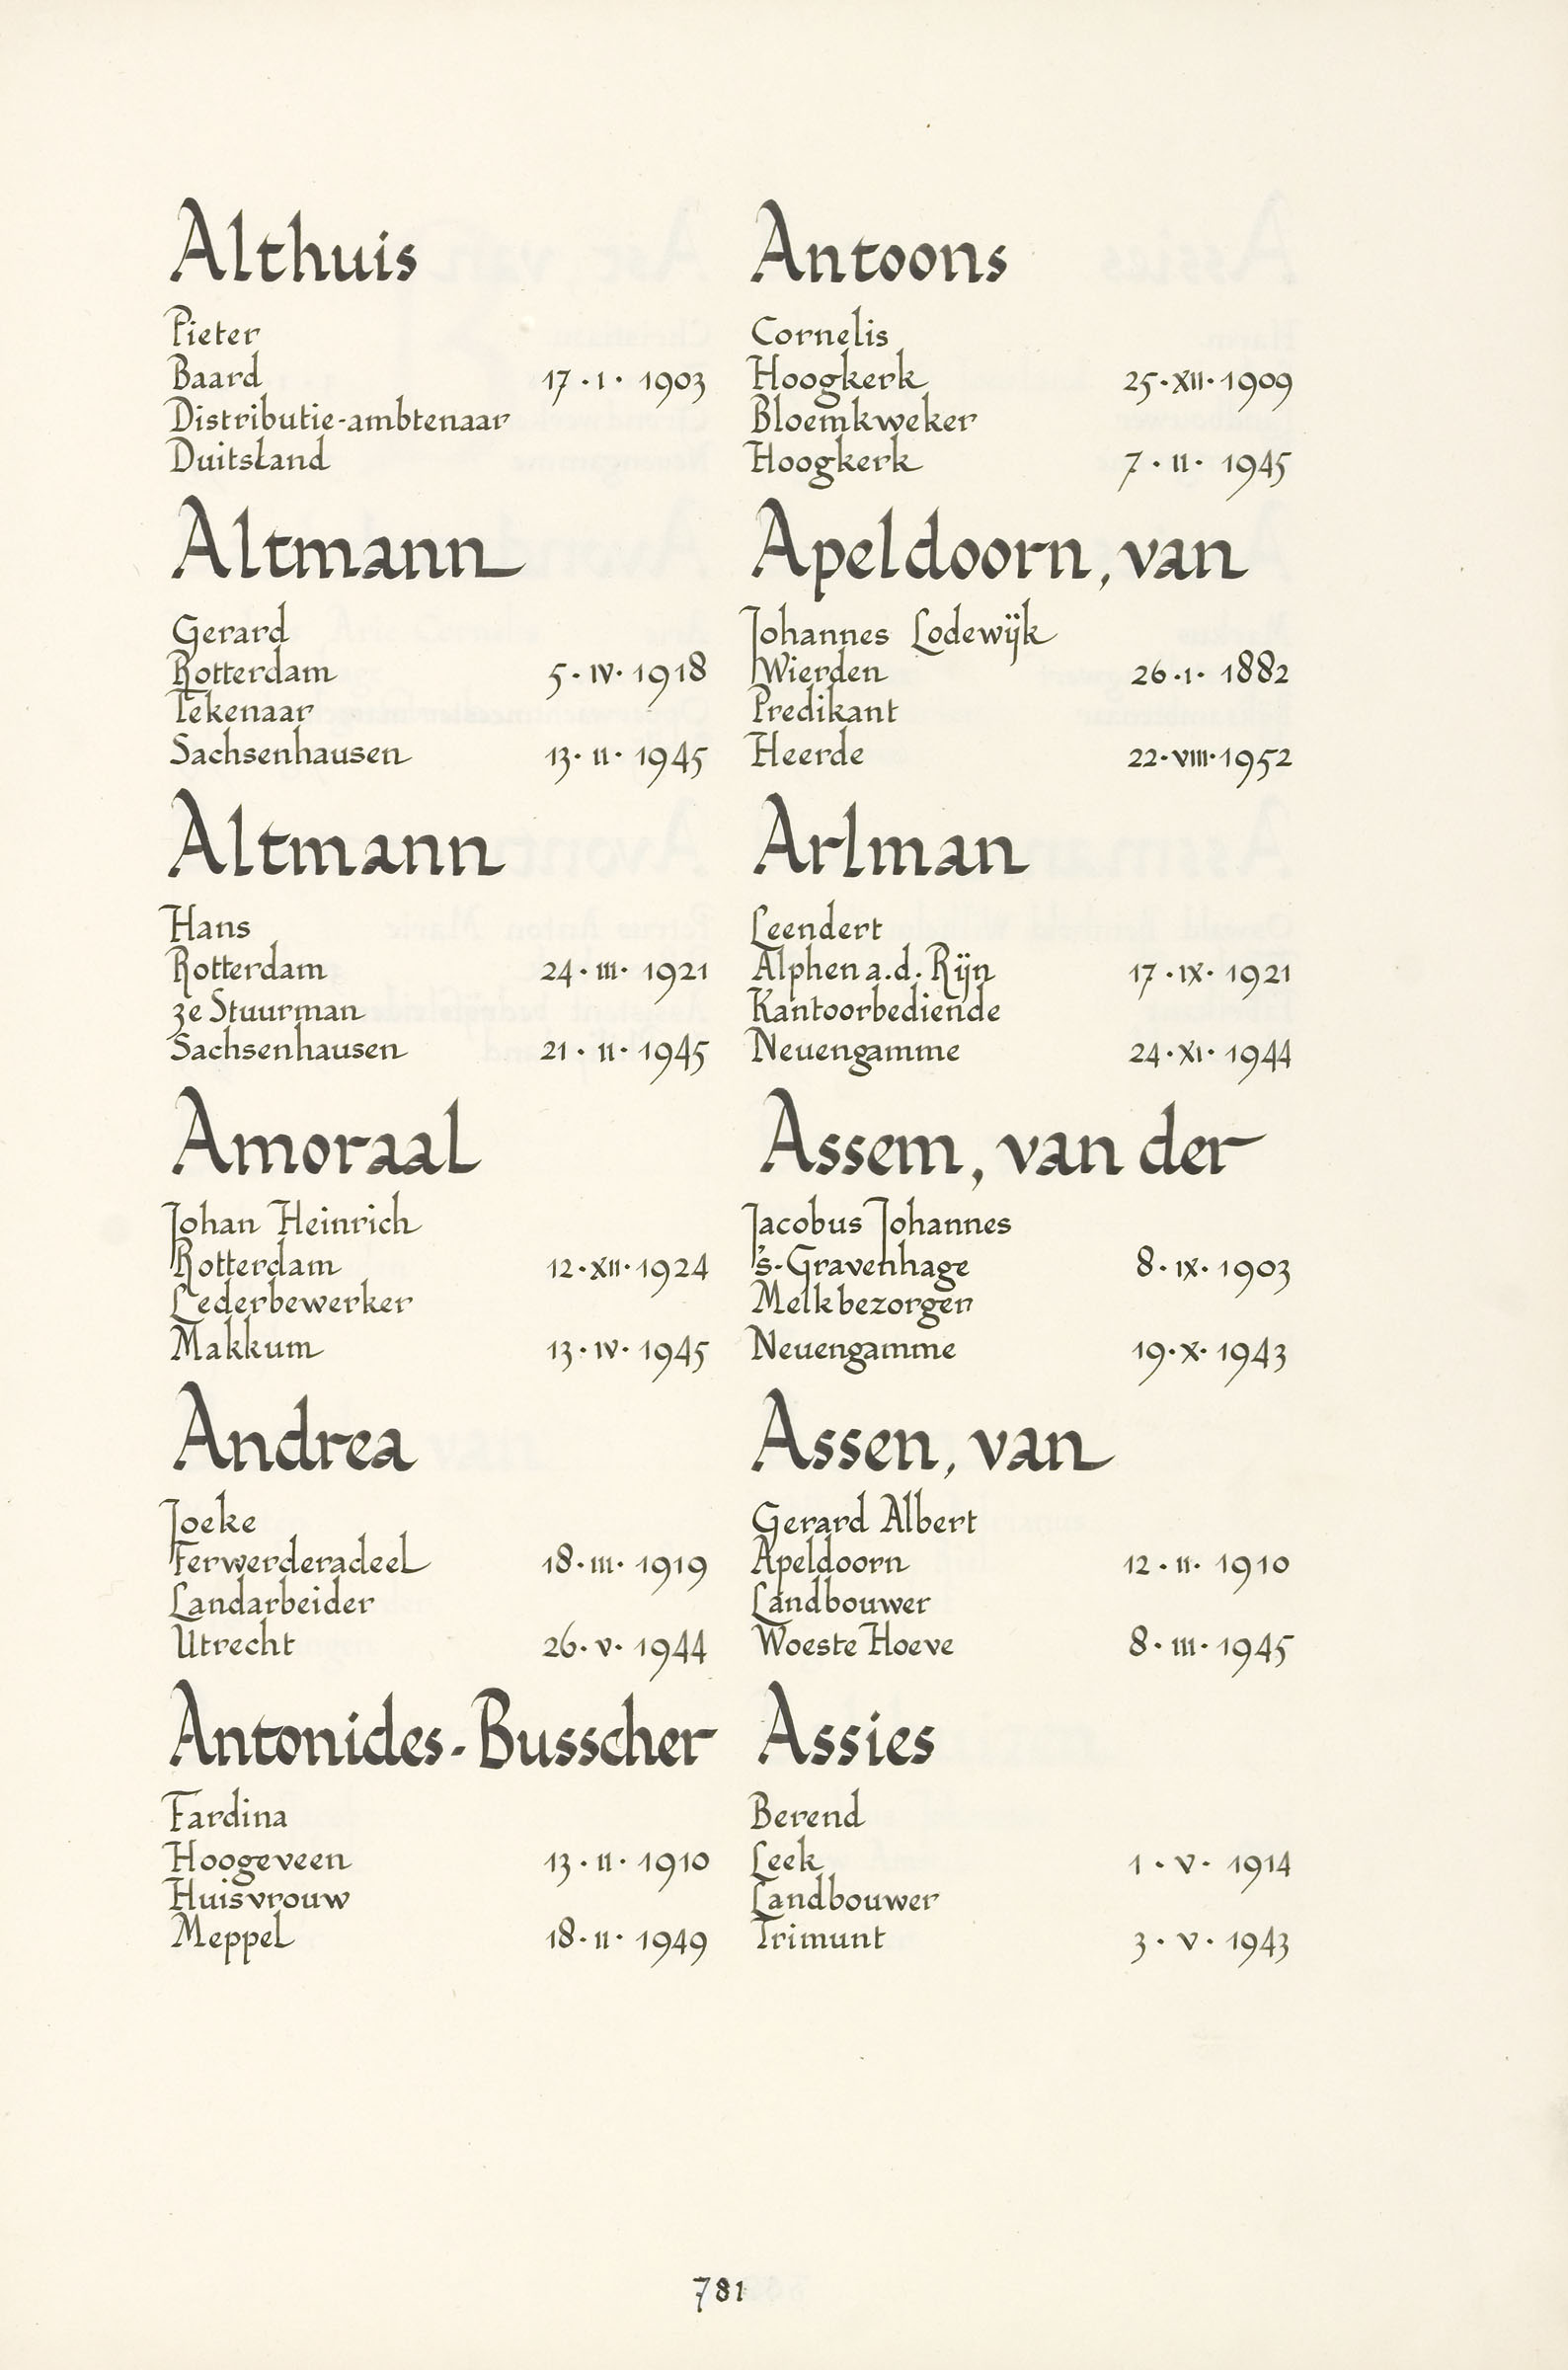 Althuis
Pieter
Baard 17·I·1903
Distributie-ambtenaar
Duitsland
Altmann
Gerard
Rotterdam 5·IV·1918
Tekenaar
Sachsenhausen 13·II·1945
Altmann
Hans
Rotterdam 24·III·1921
3e Stuurman
Sachsenhausen 21·II·1945
Amoraal
Johan Heinrich
Rotterdam 12·XII·1924
Lederbewerker
Makkum 13·IV·1945
Andrea
Joeke
Ferwerderadeel 18·III·1919
Landarbeider
Utrecht 26·V·1944
Antonides-Busscher
Fardina
Hoogeveen 13·II·1910
Huisvrouw
Meppel 18·II·1949
Antoons
Cornelis
Hoogkerk 25·XII·1909
Bloemkweker
Hoogkerk 7·II·1945
Apeldoorn, van
Johannes Lodewijk
Wierden 26·I·1882
Predikant
Heerde 22·VIII·1952
Arlman
Leendert
Alphen a.d. Rijn 17·IX·1921
Kantoorbediende
Neuengamme 24·XI·1944
Assem, van der
Jacobus Johannes
's-Gravenhage 8·IX·1903
Melkbezorger
Neuengamme 19·X·1943
Assen, van
Gerard Albert
Apeldoorn 12·II·1910
Landbouwer
Woeste Hoeve 8·III·1945
Assies
Berend
Leek 1·V·1914
Landbouwer
Trimunt 3·V·1943
781